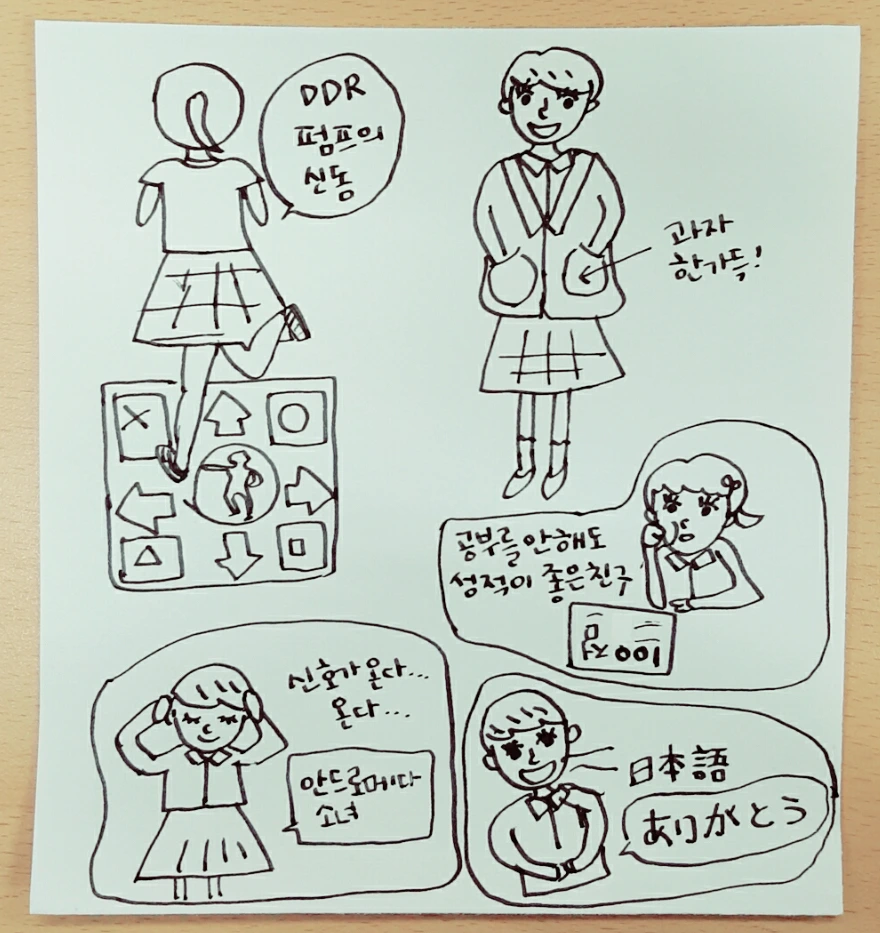 DDR
펌프의
신동
과자
한가득!
공부를 안해도
성적이 좋은친구
100점
신호가 온다...
온다...
안드로메다
소녀
日本語
ありがとう